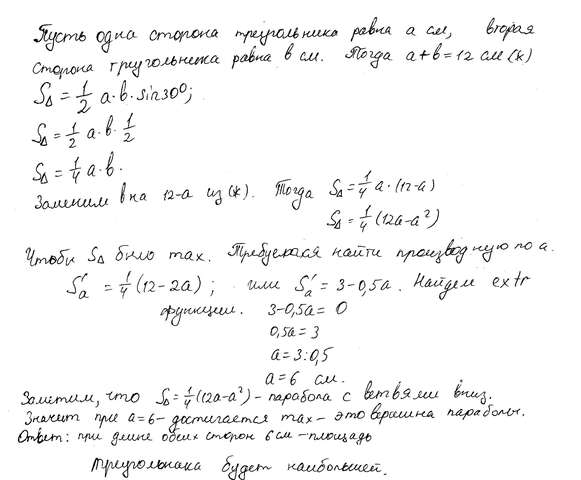 Пусть одна сторона треугольника равна a см, вторая
сторона треугольника равна в см. Тогда a+b=12 см (*)
S△ = 1/2 a·b·sin30°;
S△ = 1/2 a·b·1/2
S△ = 1/4 a·b.
Заменим b на 12-a из (*). Тогда S△ = 1/4 a·(12-a)
S△ = 1/4 (12a-a²)
Чтобы S△ было max. Требуется найти производную по a.
S'a = 1/4 (12-2a); или S'a = 3-0,5a. Найдем extr
функции. 3-0,5a = 0
0,5a = 3
a = 3:0,5
a = 6 см.
Заметим, что S△ = 1/4 (12a-a²) - парабола с ветвями вниз.
Значит при a=6 - достигается max - это вершина параболы.
Ответ: при длине обеих сторон 6 см - площадь
треугольника будет наибольшей.